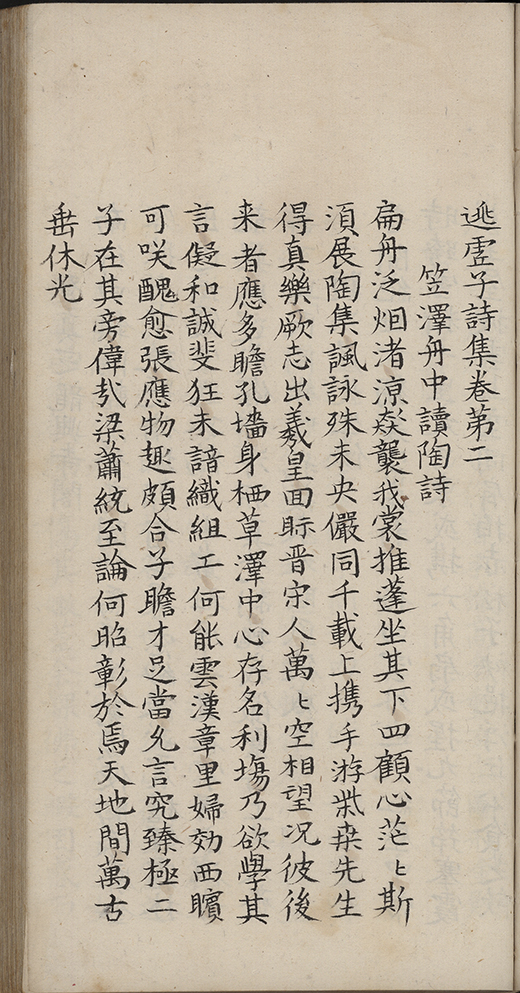 逃虛子詩集卷第二
笠澤舟中讀陶詩
扁舟泛烟渚涼焱襲我裳推蓬坐其下四顧心茫〻斯
須展陶集諷詠殊未央儼同千載上携手游柴桒先生
得真樂厥志出羲皇回眎晋宋人萬〻空相望况彼後
来者應多瞻孔墻身栖草澤中心存名利塲乃欲學其
言儗和誠斐狂未諳織組工何能雲漢章里婦効西矉
可咲醜愈張應物趣頗合子瞻才足當允言究臻極二
子在其旁偉哉梁蕭統至論何昭彰於焉天地間萬古
垂休光